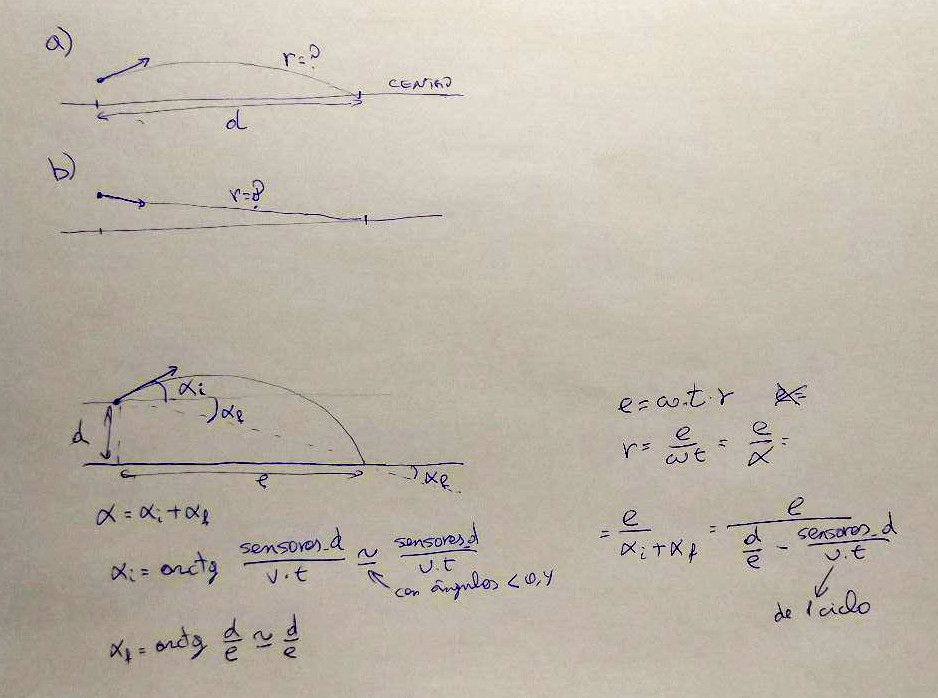 a)
r=?
CENTRO
d
b)
r=?
αi
αf
d
e
αf
α = αi + αf
αi = arctg sensores_d / v.t ≃ sensores_d / v.t
con ángulos < 0,4
αf = arctg d/e ≃ d/e
e = ω.t.r
r = e/ωt = e/α =
= e/(αi + αf) = e/(d/e - sensores_d/v.t)
de 1 ciclo